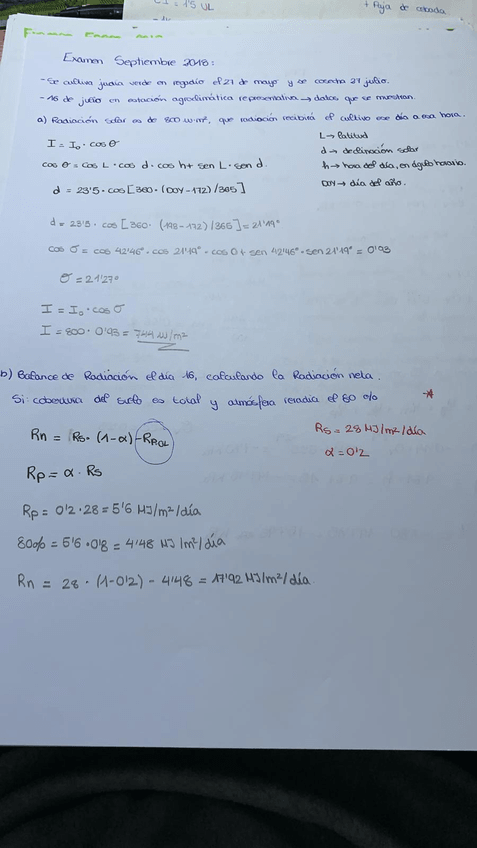 C I = 1'5 UL
+ Paja de cebada
Examen Septiembre 2018:
- Se cultiva judía verde en regadío el 21 de mayo y se cosecha 27 julio.
- 16 de julio en estación agroclimática representativa → datos que se muestran.
a) Radiación solar es de 800 w·m², que radiación recibirá el cultivo ese día a esa hora.
I = I₀ · cos θ
L → latitud
cos θ = cos L · cos d · cos h + sen L · sen d.
d → declinación solar
h → hora del día, en ángulo horario.
d = 23'5 · cos [360 · (DOY - 172) / 365]
DOY → día del año.
d = 23'5 · cos [360 · (198 - 172) / 365] = 21'19°
cos σ = cos 42'46° · cos 21'19° · cos 0 + sen 42'46° · sen 21'19° = 0'93
σ = 21'27°
I = I₀ · cos σ
I = 800 · 0'93 = 744 w/m²
b) Balance de Radiación el día 16, calculando la Radiación neta.
Si cobertura del suelo es total y atmósfera reradia el 80 %
Rn = Rs · (1 - α) - R ROL
Rs = 28 MJ/m²/día
α = 0'2
Rp = α · Rs
Rp = 0'2 · 28 = 5'6 MJ/m²/día
80% = 5'6 · 0'8 = 4'48 MJ/m²/día
Rn = 28 · (1 - 0'2) - 4'48 = 17'92 MJ/m²/día